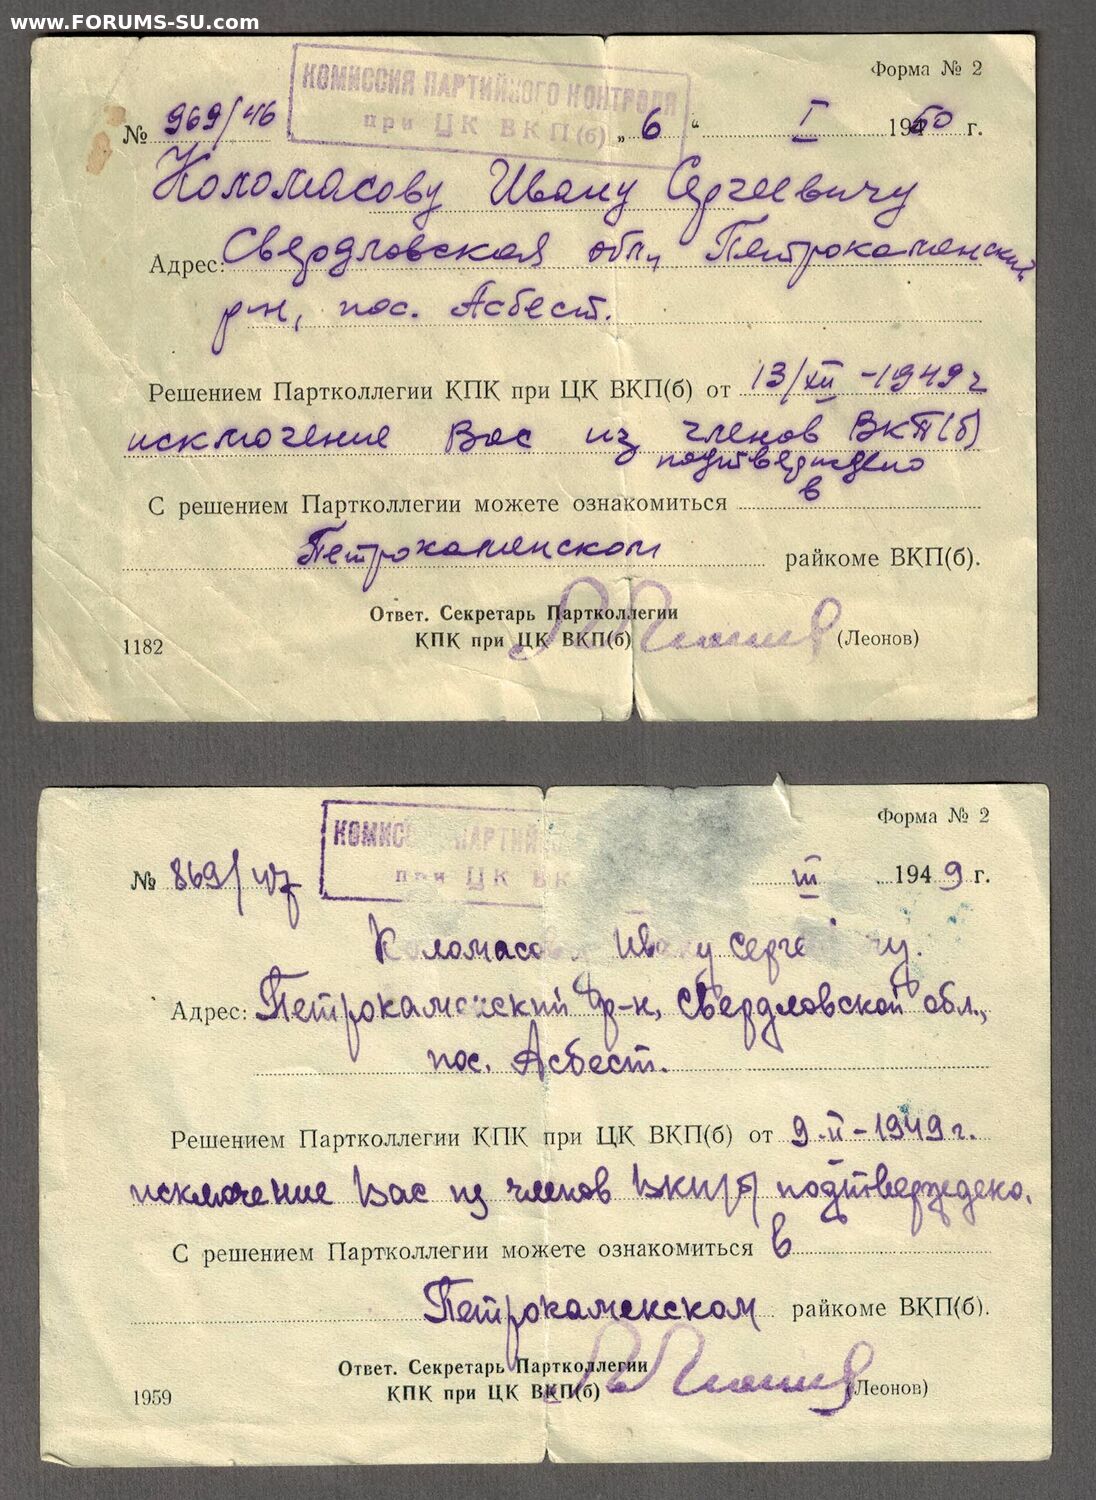 www.FORUMS-SU.com
Форма № 2
КОМИССИЯ ПАРТИЙНОГО КОНТРОЛЯ
при ЦК ВКП(б)
№ 969/46 „6“ I 1950 г.
Коломасову Ивану Сергеевичу
Адрес: Свердловская обл., Петрокаменский
р-н, пос. Асбест.
Решением Партколлегии КПК при ЦК ВКП(б) от 13/XII-1949 г
исключение Вас из членов ВКП(б)
подтверждено
С решением Партколлегии можете ознакомиться в
Петрокаменском райкоме ВКП(б).
Ответ. Секретарь Партколлегии
КПК при ЦК ВКП(б) (Леонов)
1182
Форма № 2
КОМИСС ПАРТИЙ
при ЦК ВК
№ 869/ III 1949 г.
Коломасов Ивану Серге чу.
Адрес: Петрокаменский р-н, Свердловской обл.,
пос. Асбест.
Решением Партколлегии КПК при ЦК ВКП(б) от 9-II-1949 г.
исключение Вас из членов ВКП(б) подтверждено.
С решением Партколлегии можете ознакомиться в
Петрокаменском райкоме ВКП(б).
Ответ. Секретарь Партколлегии
КПК при ЦК ВКП(б) (Леонов)
1959